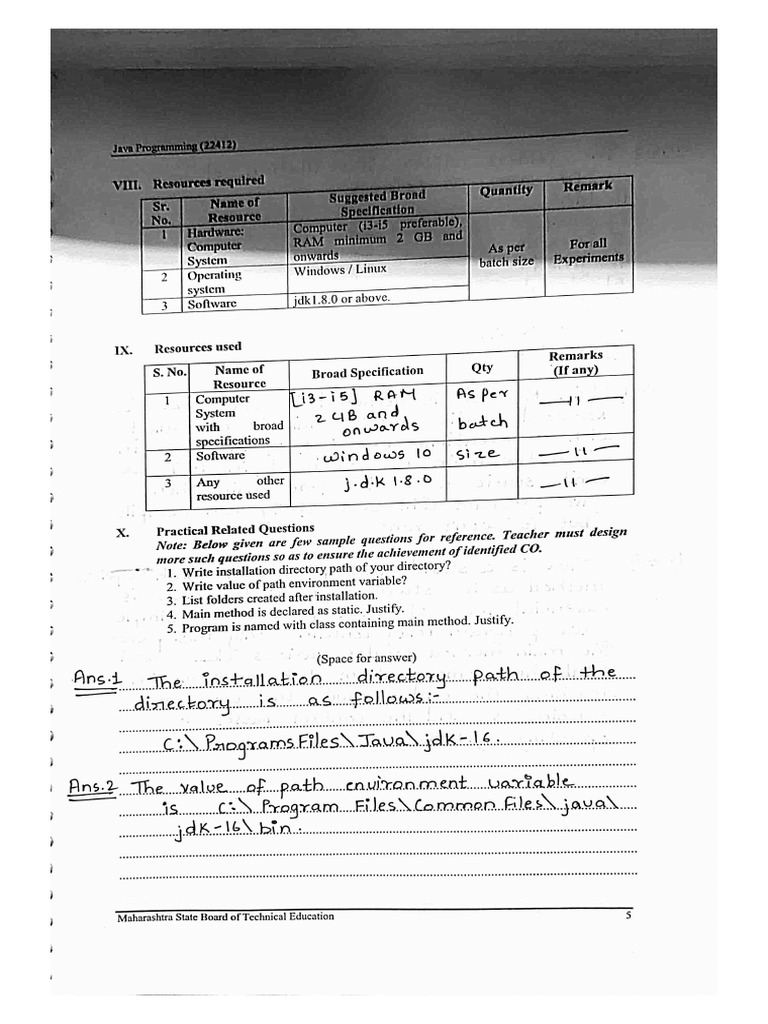 Java Programming (22412)
VIII. Resources required
Sr. No. Name of Resource Suggested Broad Specification Quantity Remark
1 Hardware: Computer System Computer (i3-i5 preferable), RAM minimum 2 GB and onwards As per batch size For all Experiments
2 Operating system Windows / Linux
3 Software jdk1.8.0 or above.
IX. Resources used
S. No. Name of Resource Broad Specification Qty Remarks (If any)
1 Computer System with broad specifications [i3-i5] RAM 2 GB and onwards As per batch size — 11 —
2 Software windows 10 — 11 —
3 Any other resource used j.d.k 1.8.0 — 11 —
X. Practical Related Questions
Note: Below given are few sample questions for reference. Teacher must design
more such questions so as to ensure the achievement of identified CO.
1. Write installation directory path of your directory?
2. Write value of path environment variable?
3. List folders created after installation.
4. Main method is declared as static. Justify.
5. Program is named with class containing main method. Justify.
(Space for answer)
Ans.1 The installation directory path of the
directory is as follows:-
C:\ProgramsFiles\Java\jdk-16.
Ans.2 The value of path environment variable
is C:\Program Files\Common Files\java\
jdk-16\bin.
Maharashtra State Board of Technical Education 5